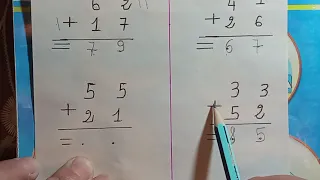 6 2
+ 1 7
= 7 9
4 1
+ 2 6
= 6 7
5 5
+ 2 1
= . .
3 3
+ 5 2
= 8 5